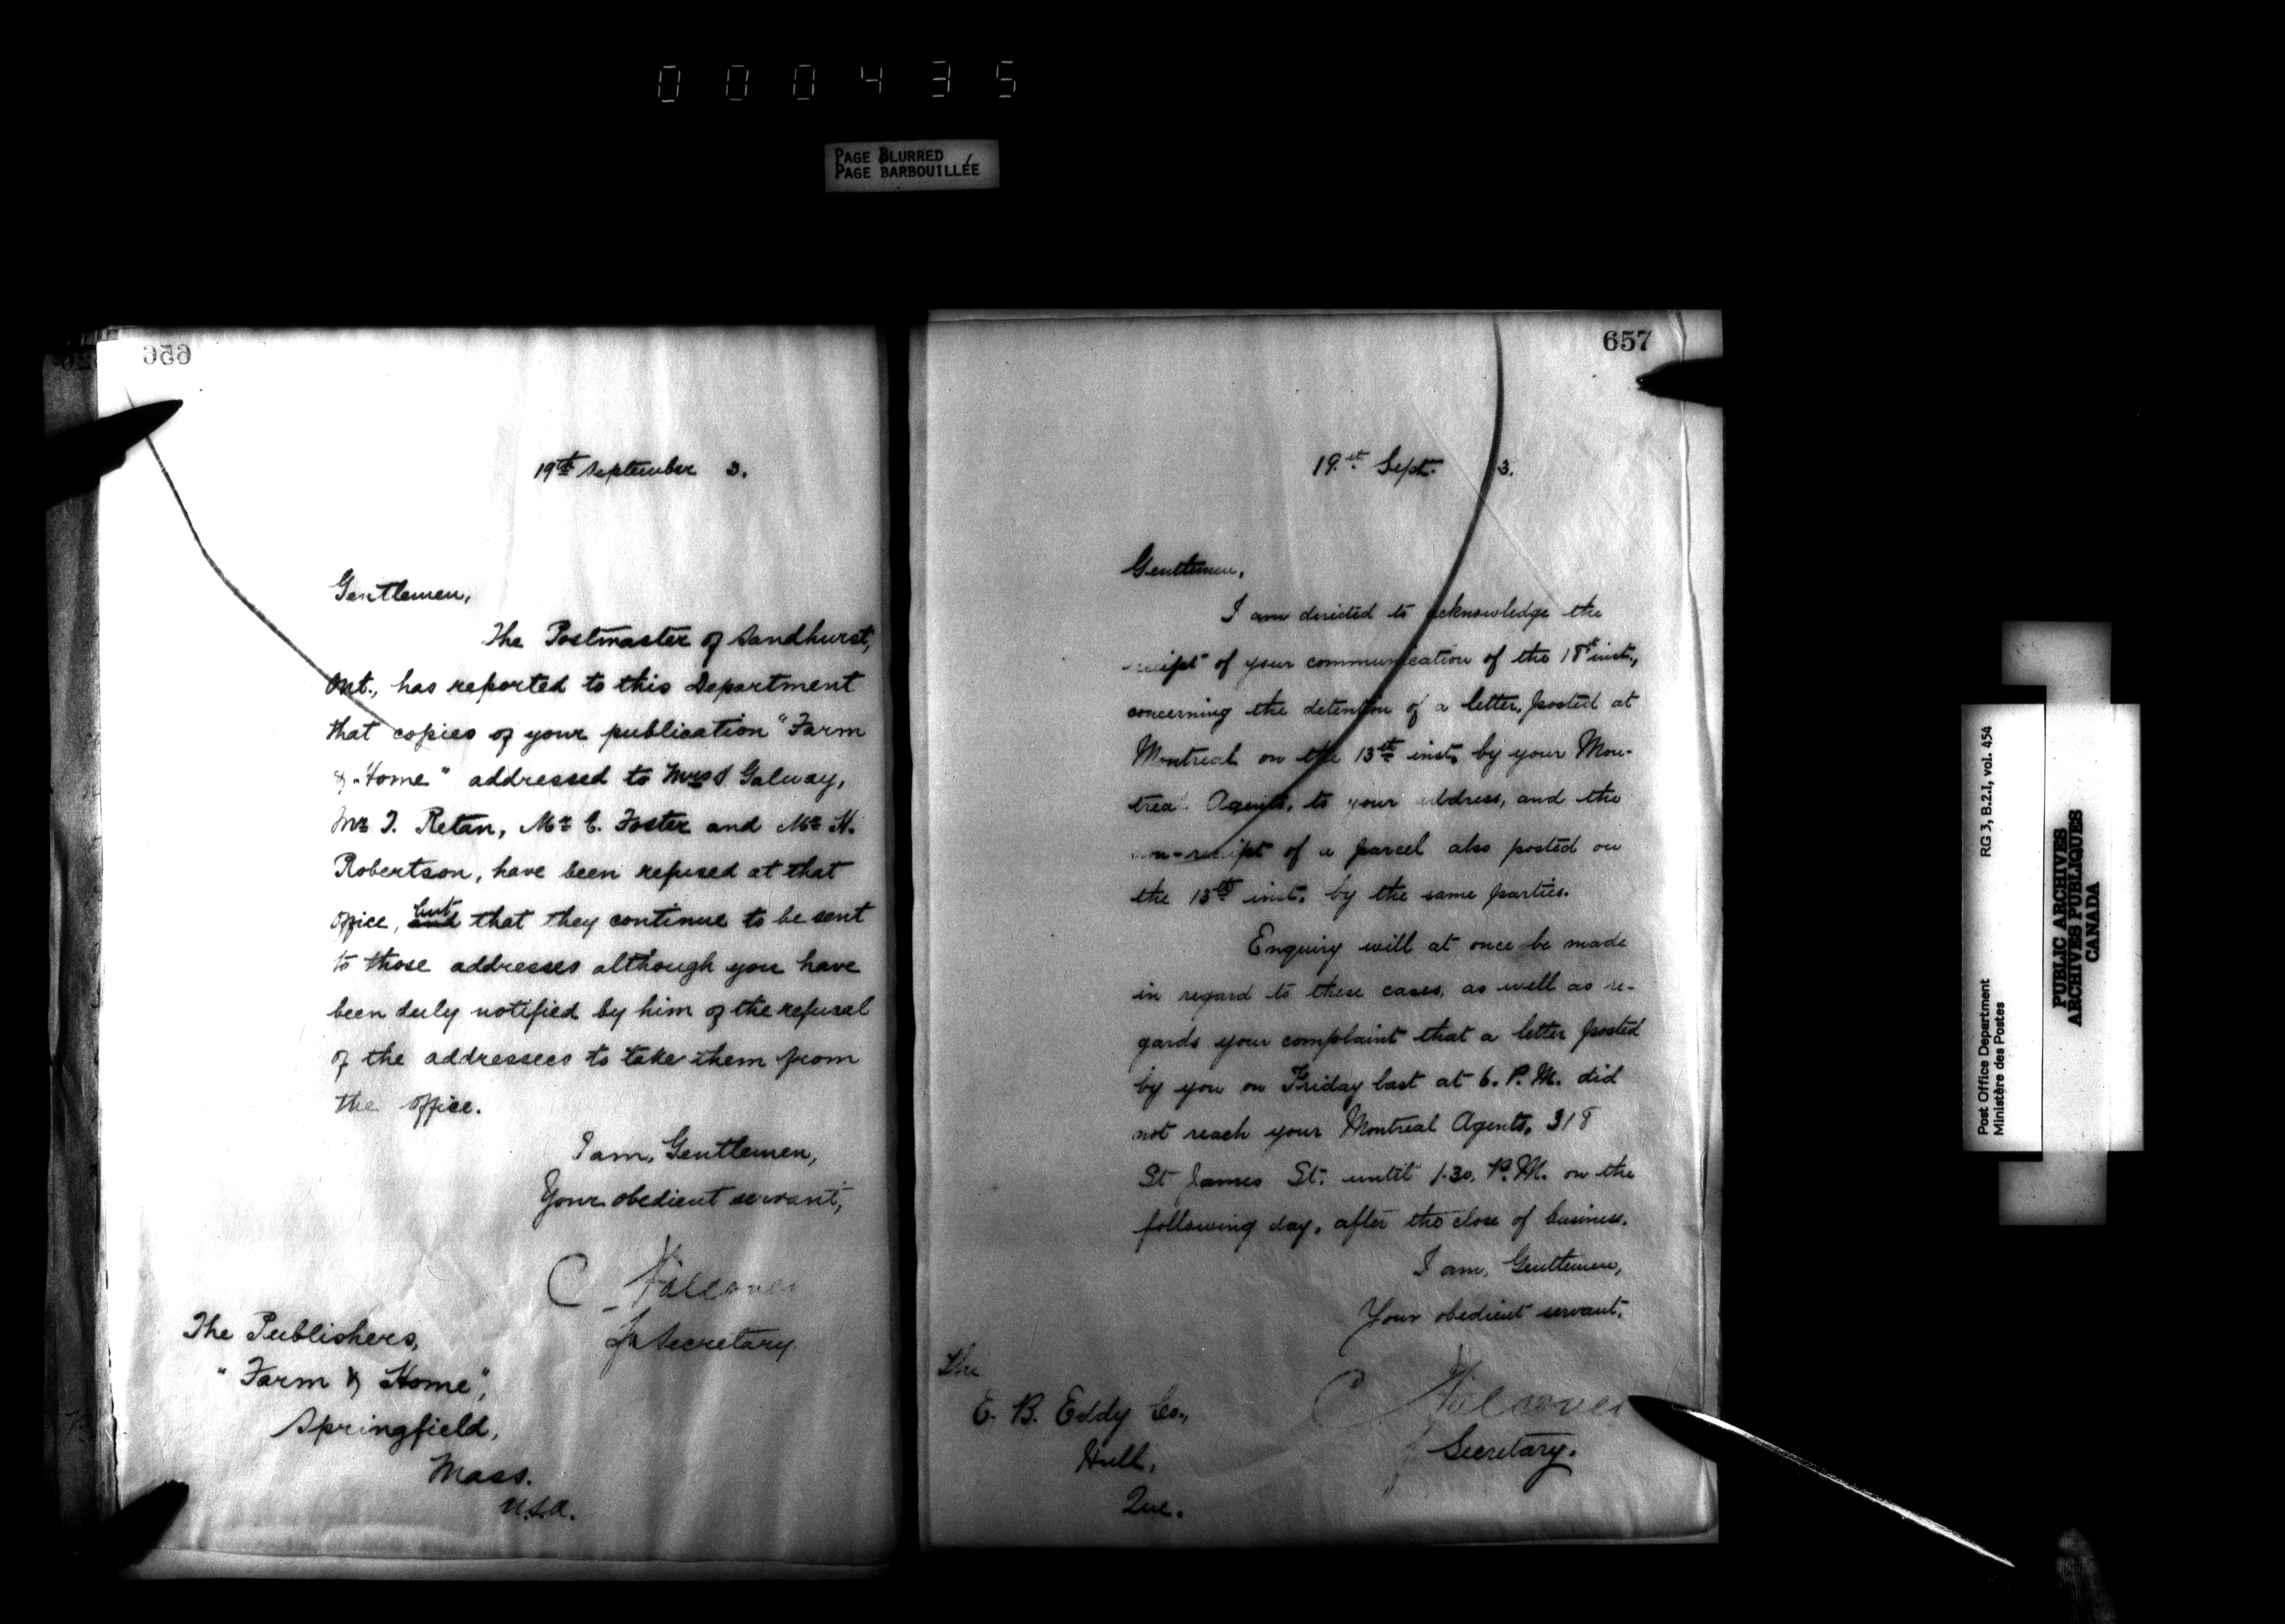 000435
PAGE BLURRED
PAGE BARBOUILLÉE
656
19th September 3.
Gentlemen,
The Postmaster of Sandhurst,
Ont., has reported to this Department
that copies of your publication "Farm
& Home" addressed to Mrs S. Galway,
Mr T. Retan, Mr E. Foster and Mr H.
Robertson, have been refused at that
office, and but that they continue to be sent
to those addresses although you have
been duly notified by him of the refusal
of the addressees to take them from
the office.
I am, Gentlemen,
Your obedient servant,
C
Secretary.
The Publishers,
"Farm & Home",
Springfield,
Mass.
U.S.A.
657
19th Sept. 3.
Gentlemen,
I am directed to acknowledge the
receipt of your communication of the 18th inst.,
concerning the detention of a letter, posted at
Montreal on the 13th inst. by your Mon-
treal Agents, to your address, and the
non-receipt of a parcel also posted on
the 13th inst. by the same parties.
Enquiry will at once be made
in regard to these cases, as well as re-
gards your complaint that a letter posted
by you on Friday last at 6. P.M. did
not reach your Montreal Agents, 318
St James St. until 1.30. P.M. on the
following day, after the close of business.
I am, Gentlemen,
Your obedient servant.
C
Secretary.
The
E. B. Eddy Co.,
Hull,
Que.
Post Office Department
Ministère des Postes
RG 3, B.2.I, vol. 454
PUBLIC ARCHIVES
ARCHIVES PUBLIQUES
CANADA